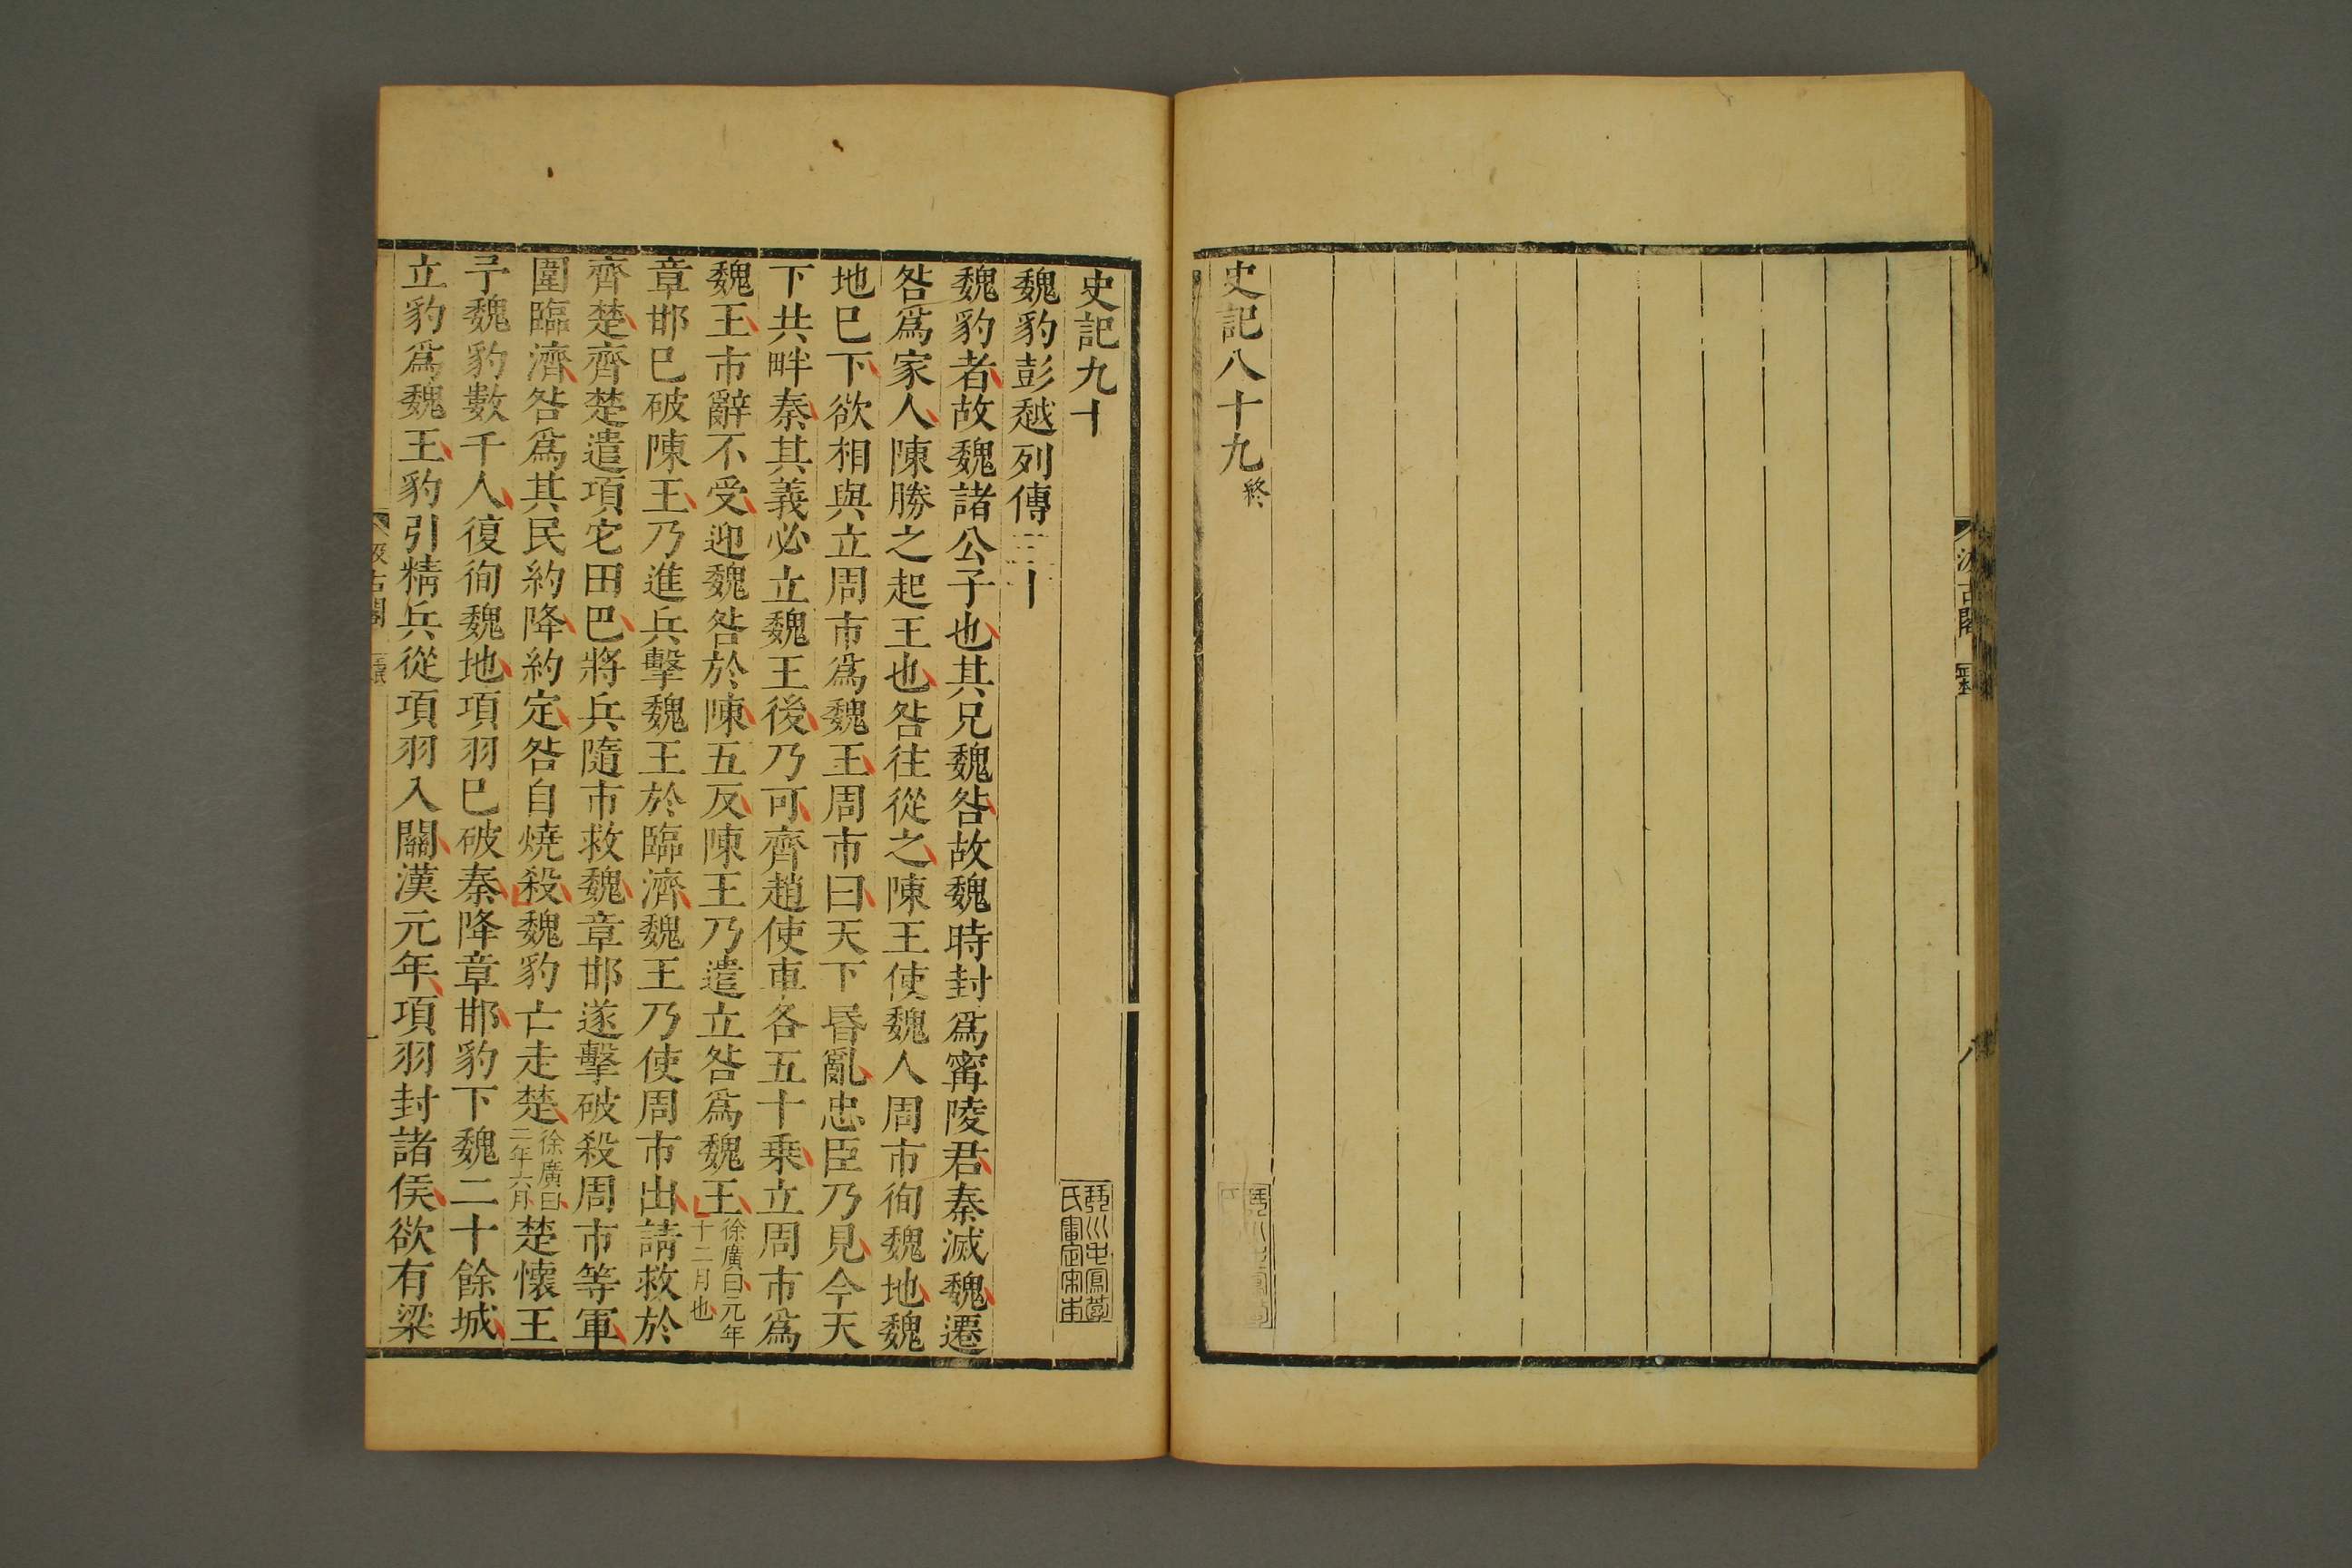 史記八十九終
史記九十
魏豹彭越列傳三十
魏豹者故魏諸公子也其兄魏咎故魏時封爲甯陵君秦滅魏遷
咎爲家人陳勝之起王也咎往從之陳王使魏人周巿徇魏地魏
地已下欲相與立周巿爲魏王周巿曰天下昏亂忠臣乃見今天
下共畔秦其義必立魏王後乃可齊趙使車各五十乗立周巿爲
魏王巿辭不受迎魏咎於陳五反陳王乃遣立咎爲魏王徐廣曰元年十二月也
章邯已破陳王乃進兵擊魏王於臨濟魏王乃使周巿出請救於
齊楚齊楚遣項它田巴將兵隨巿救魏章邯遂擊破殺周巿等軍
圍臨濟咎爲其民約降約定咎自燒殺魏豹亡走楚徐廣曰二年六月楚懷王
予魏豹數千人復徇魏地項羽已破秦降章邯豹下魏二十餘城
立豹爲魏王豹引精兵從項羽入關漢元年項羽封諸侯欲有梁
汲古閣